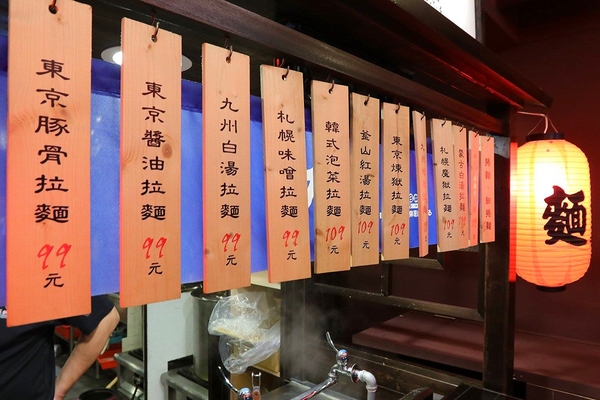 東京豚骨拉麵
99元
東京醬油拉麵
99元
九州白湯拉麵
99元
札幌味噌拉麵
99元
韓式泡菜拉麵
109元
釜山紅湯拉麵
109元
東京煉獄拉麵
109元
札幌魔獄拉麵
109元
麵